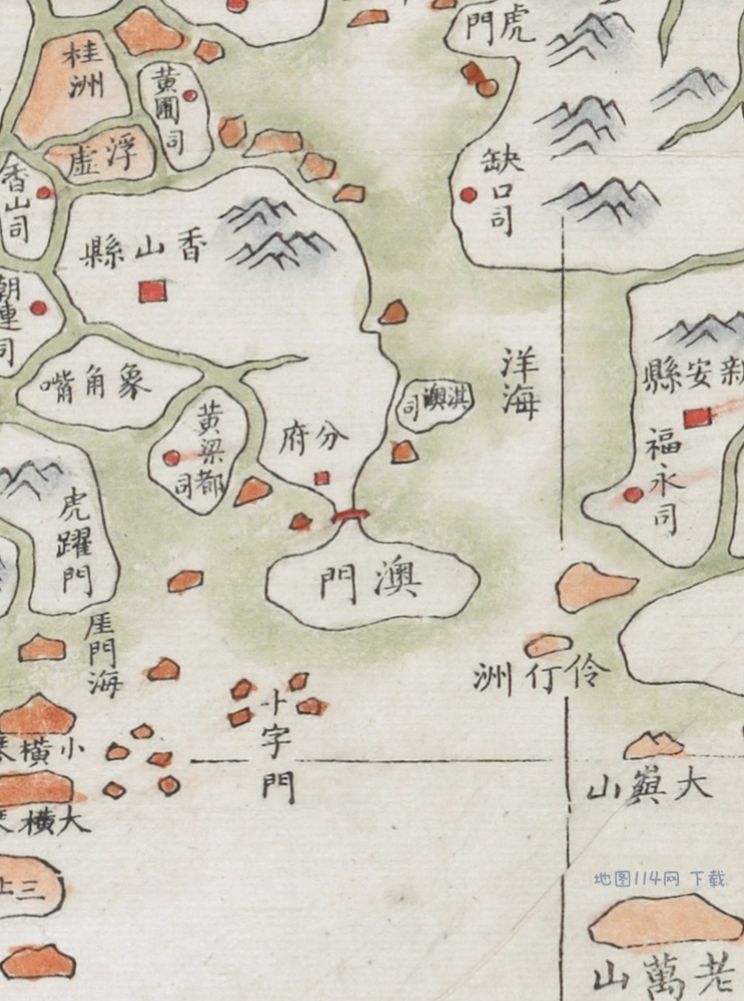 虎門
桂洲
黄圃司
浮虛
缺口司
香山司
香山縣
象角嘴
洋海
淇澳司
新安縣
黄梁都司
分府
福永司
虎躍門
澳門
厓門海
伶仃洲
十字門
小橫
大橫
大嶼山
三
地图114网 下载
老萬山